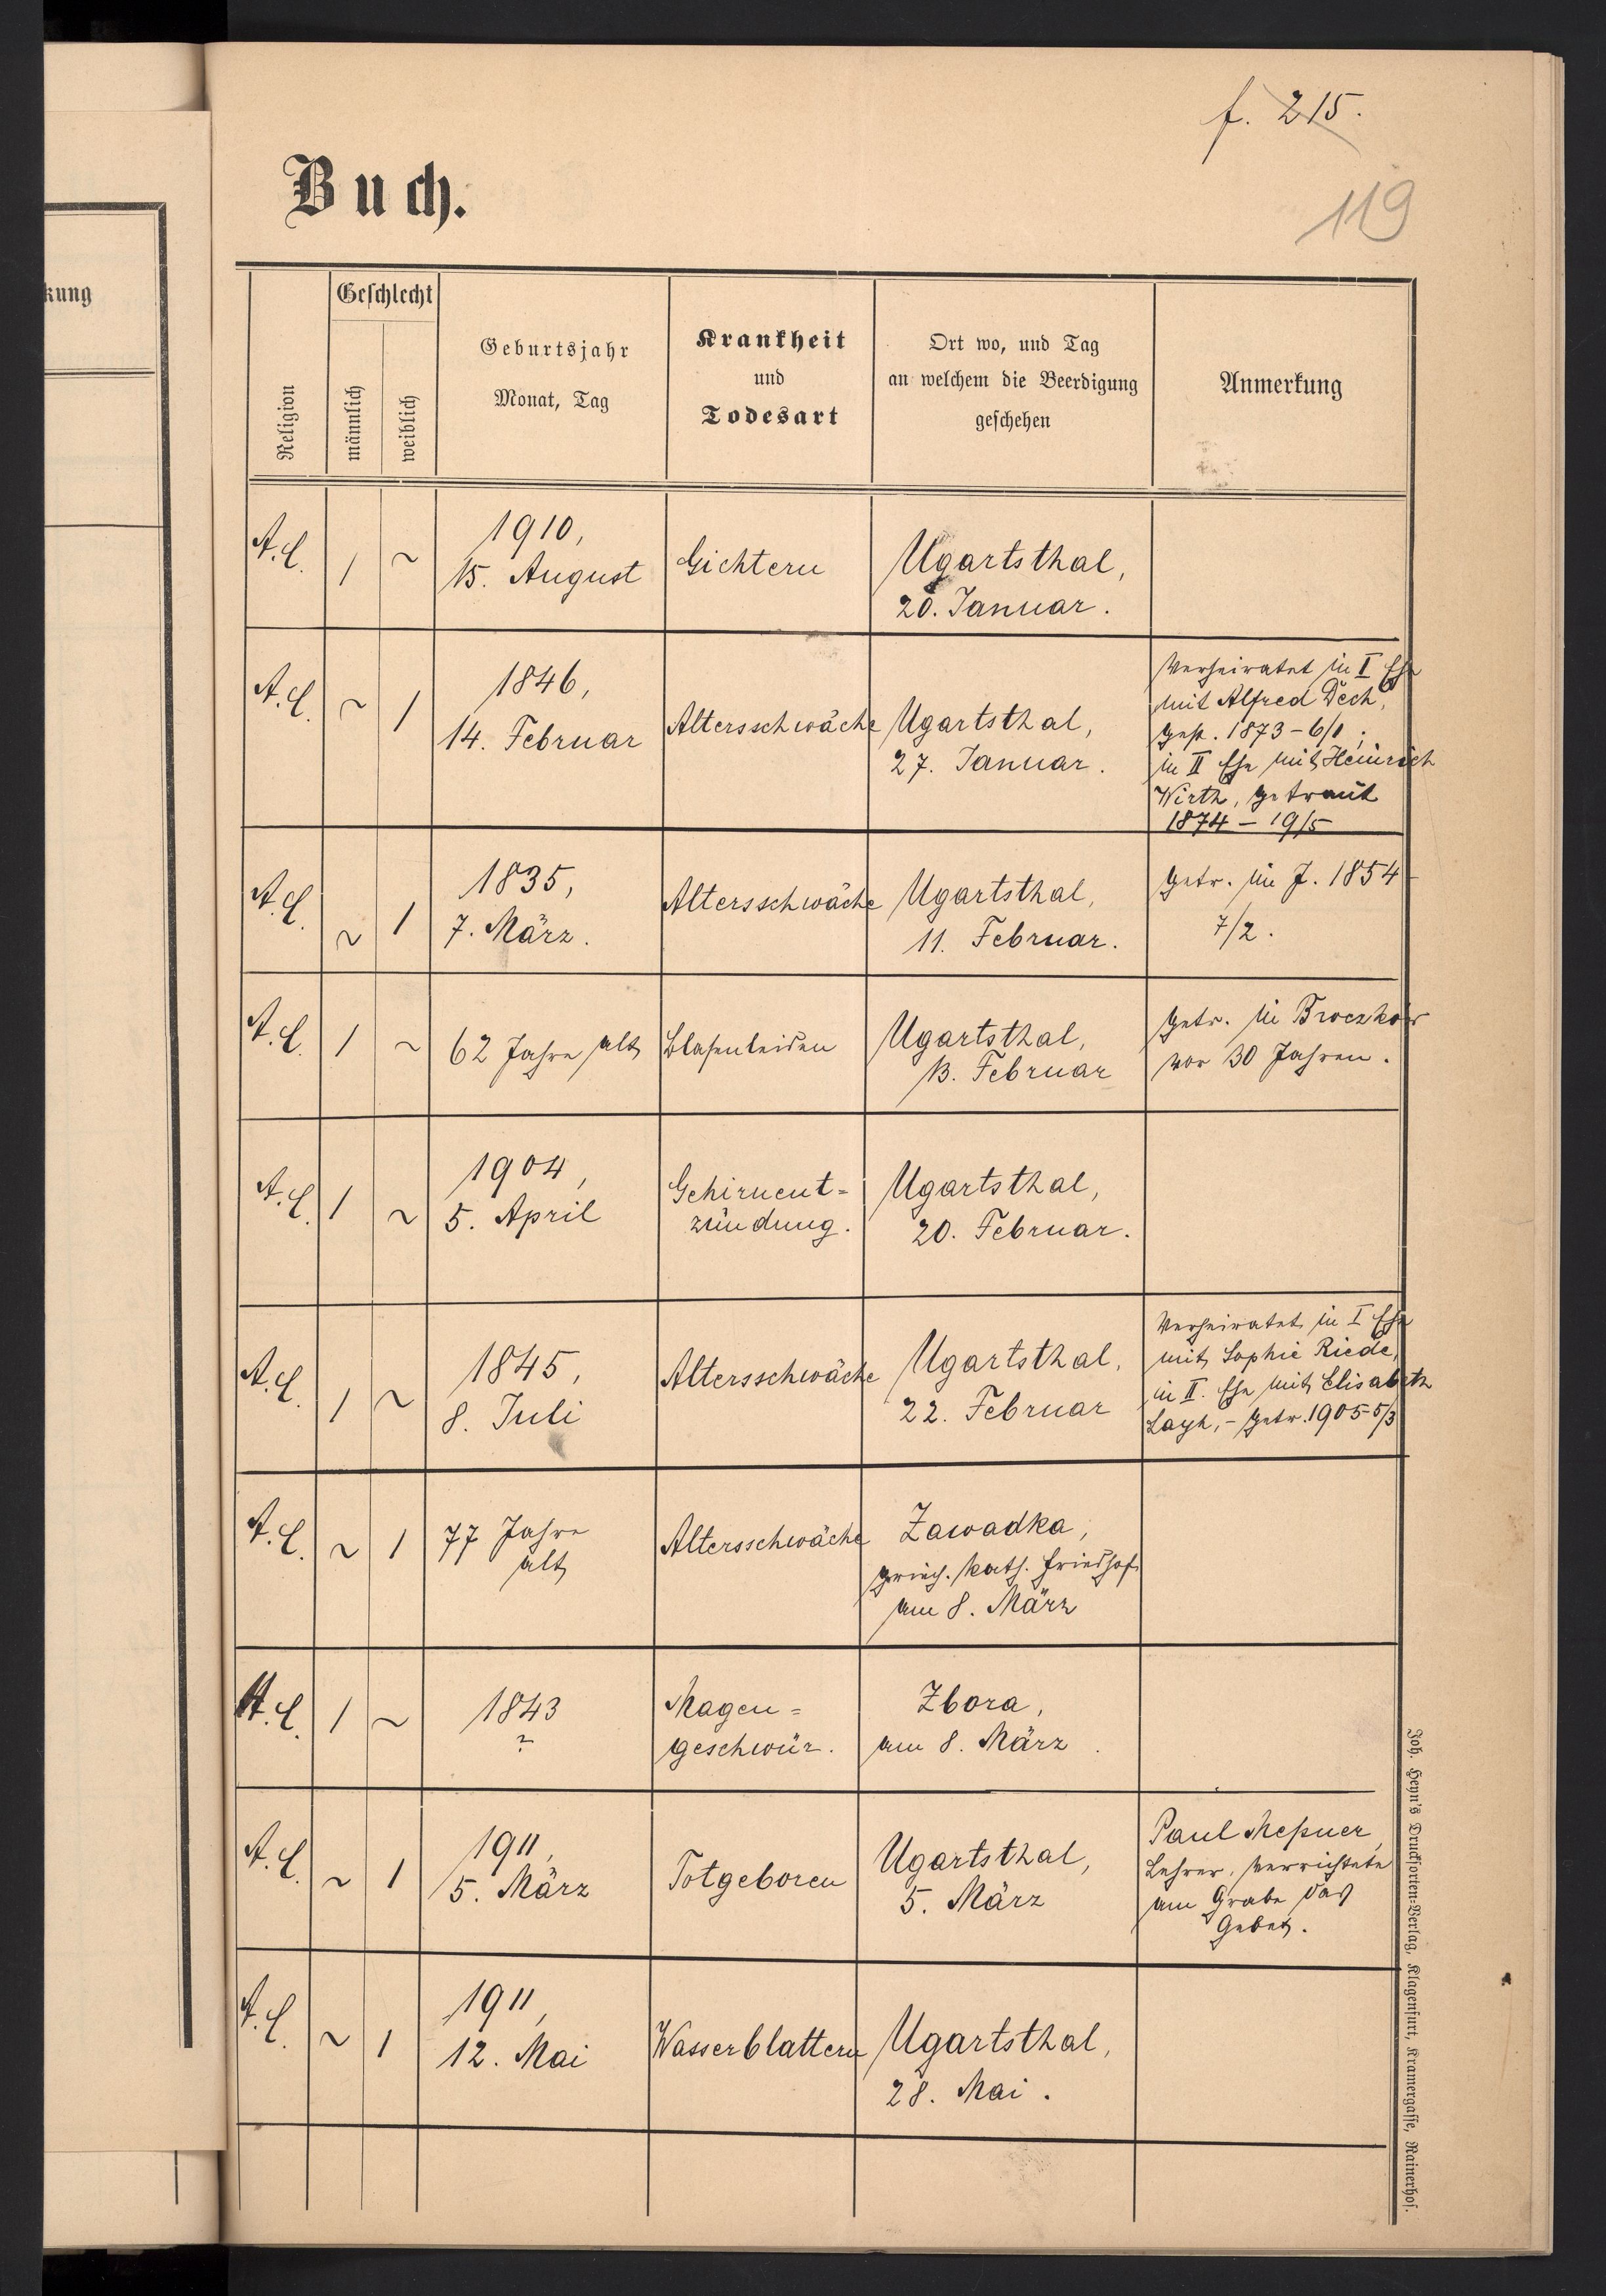 f. 215.
119
Buch.
kung
Religion
Geschlecht
männlich
weiblich
Geburtsjahr
Monat, Tag
Krankheit
und
Todesart
Ort wo, und Tag
an welchem die Beerdigung
geschehen
Anmerkung
A.C. 1 ~ 1910,
15. August
Gichtern
Ugartsthal,
20. Januar.
A.C. ~ 1 1846,
14. Februar
Altersschwäche
Ugartsthal,
27. Januar.
Verheiratet in I Ehe
mit Alfred Dech,
1873 - 6/1;
in II Ehe mit Heinrich
Wirth, getraut
1874 - 19/5
A.C. ~ 1 1835,
7. März.
Altersschwäche
Ugartsthal,
11. Februar.
Getr. im J. 1854
7/2.
A.C. 1 ~ 62 Jahre alt
Blasenleiden
Ugartsthal,
13. Februar
Getr. in Broczków
vor 30 Jahren.
A.C. 1 ~ 1904,
5. April
Gehirnent=
zündung.
Ugartsthal,
20. Februar.
A.C. 1 ~ 1845,
8. Juli
Altersschwäche
Ugartsthal,
22. Februar
Verheiratet in I Ehe
mit Sophie Riede,
in II. Ehe mit Elisabeth
Layh, - getr. 1905 5/3
A.C. ~ 1 77 Jahre
alt
Altersschwäche
Zawadka,
griech. kath. Friedhof
am 8. März
A.C. 1 ~ 1843
?
Magen=
geschwür.
Zbora,
am 8. März.
A.C. ~ 1 1911,
5. März
Totgeboren
Ugartsthal,
5. März
Paul Meßner,
Lehrer, verrichtete
am Grabe das
Gebet.
A.C. ~ 1 1911,
12. Mai
Wasserblattern
Ugartsthal,
28. Mai.
Joh. Heyn's Drucksorten-Verlag, Klagenfurt, Kramergasse, Rainerhof.